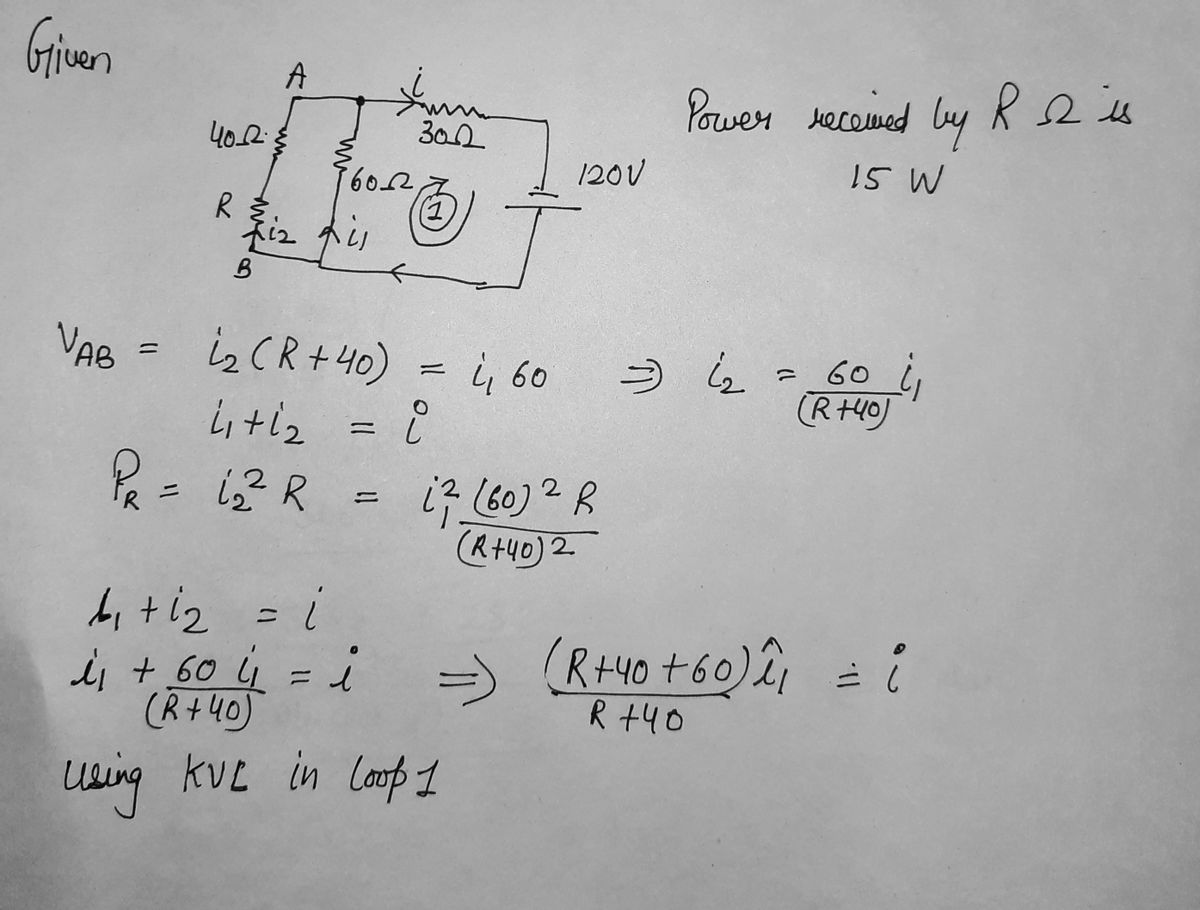 Given
A
i
40Ω
30Ω
60Ω
120V
R
i2
i1
1
B
Power received by R Ω is
15 W
VAB = i2 (R+40) = i1 60 ⇒ i2 = 60 i1 / (R+40)
i1+i2 = i
PR = i2² R = i1² (60)² R / (R+40)2
i1 + i2 = i
i1 + 60 i1 / (R+40) = i ⇒ (R+40+60) i1 / R+40 = i
Using KVL in loop 1